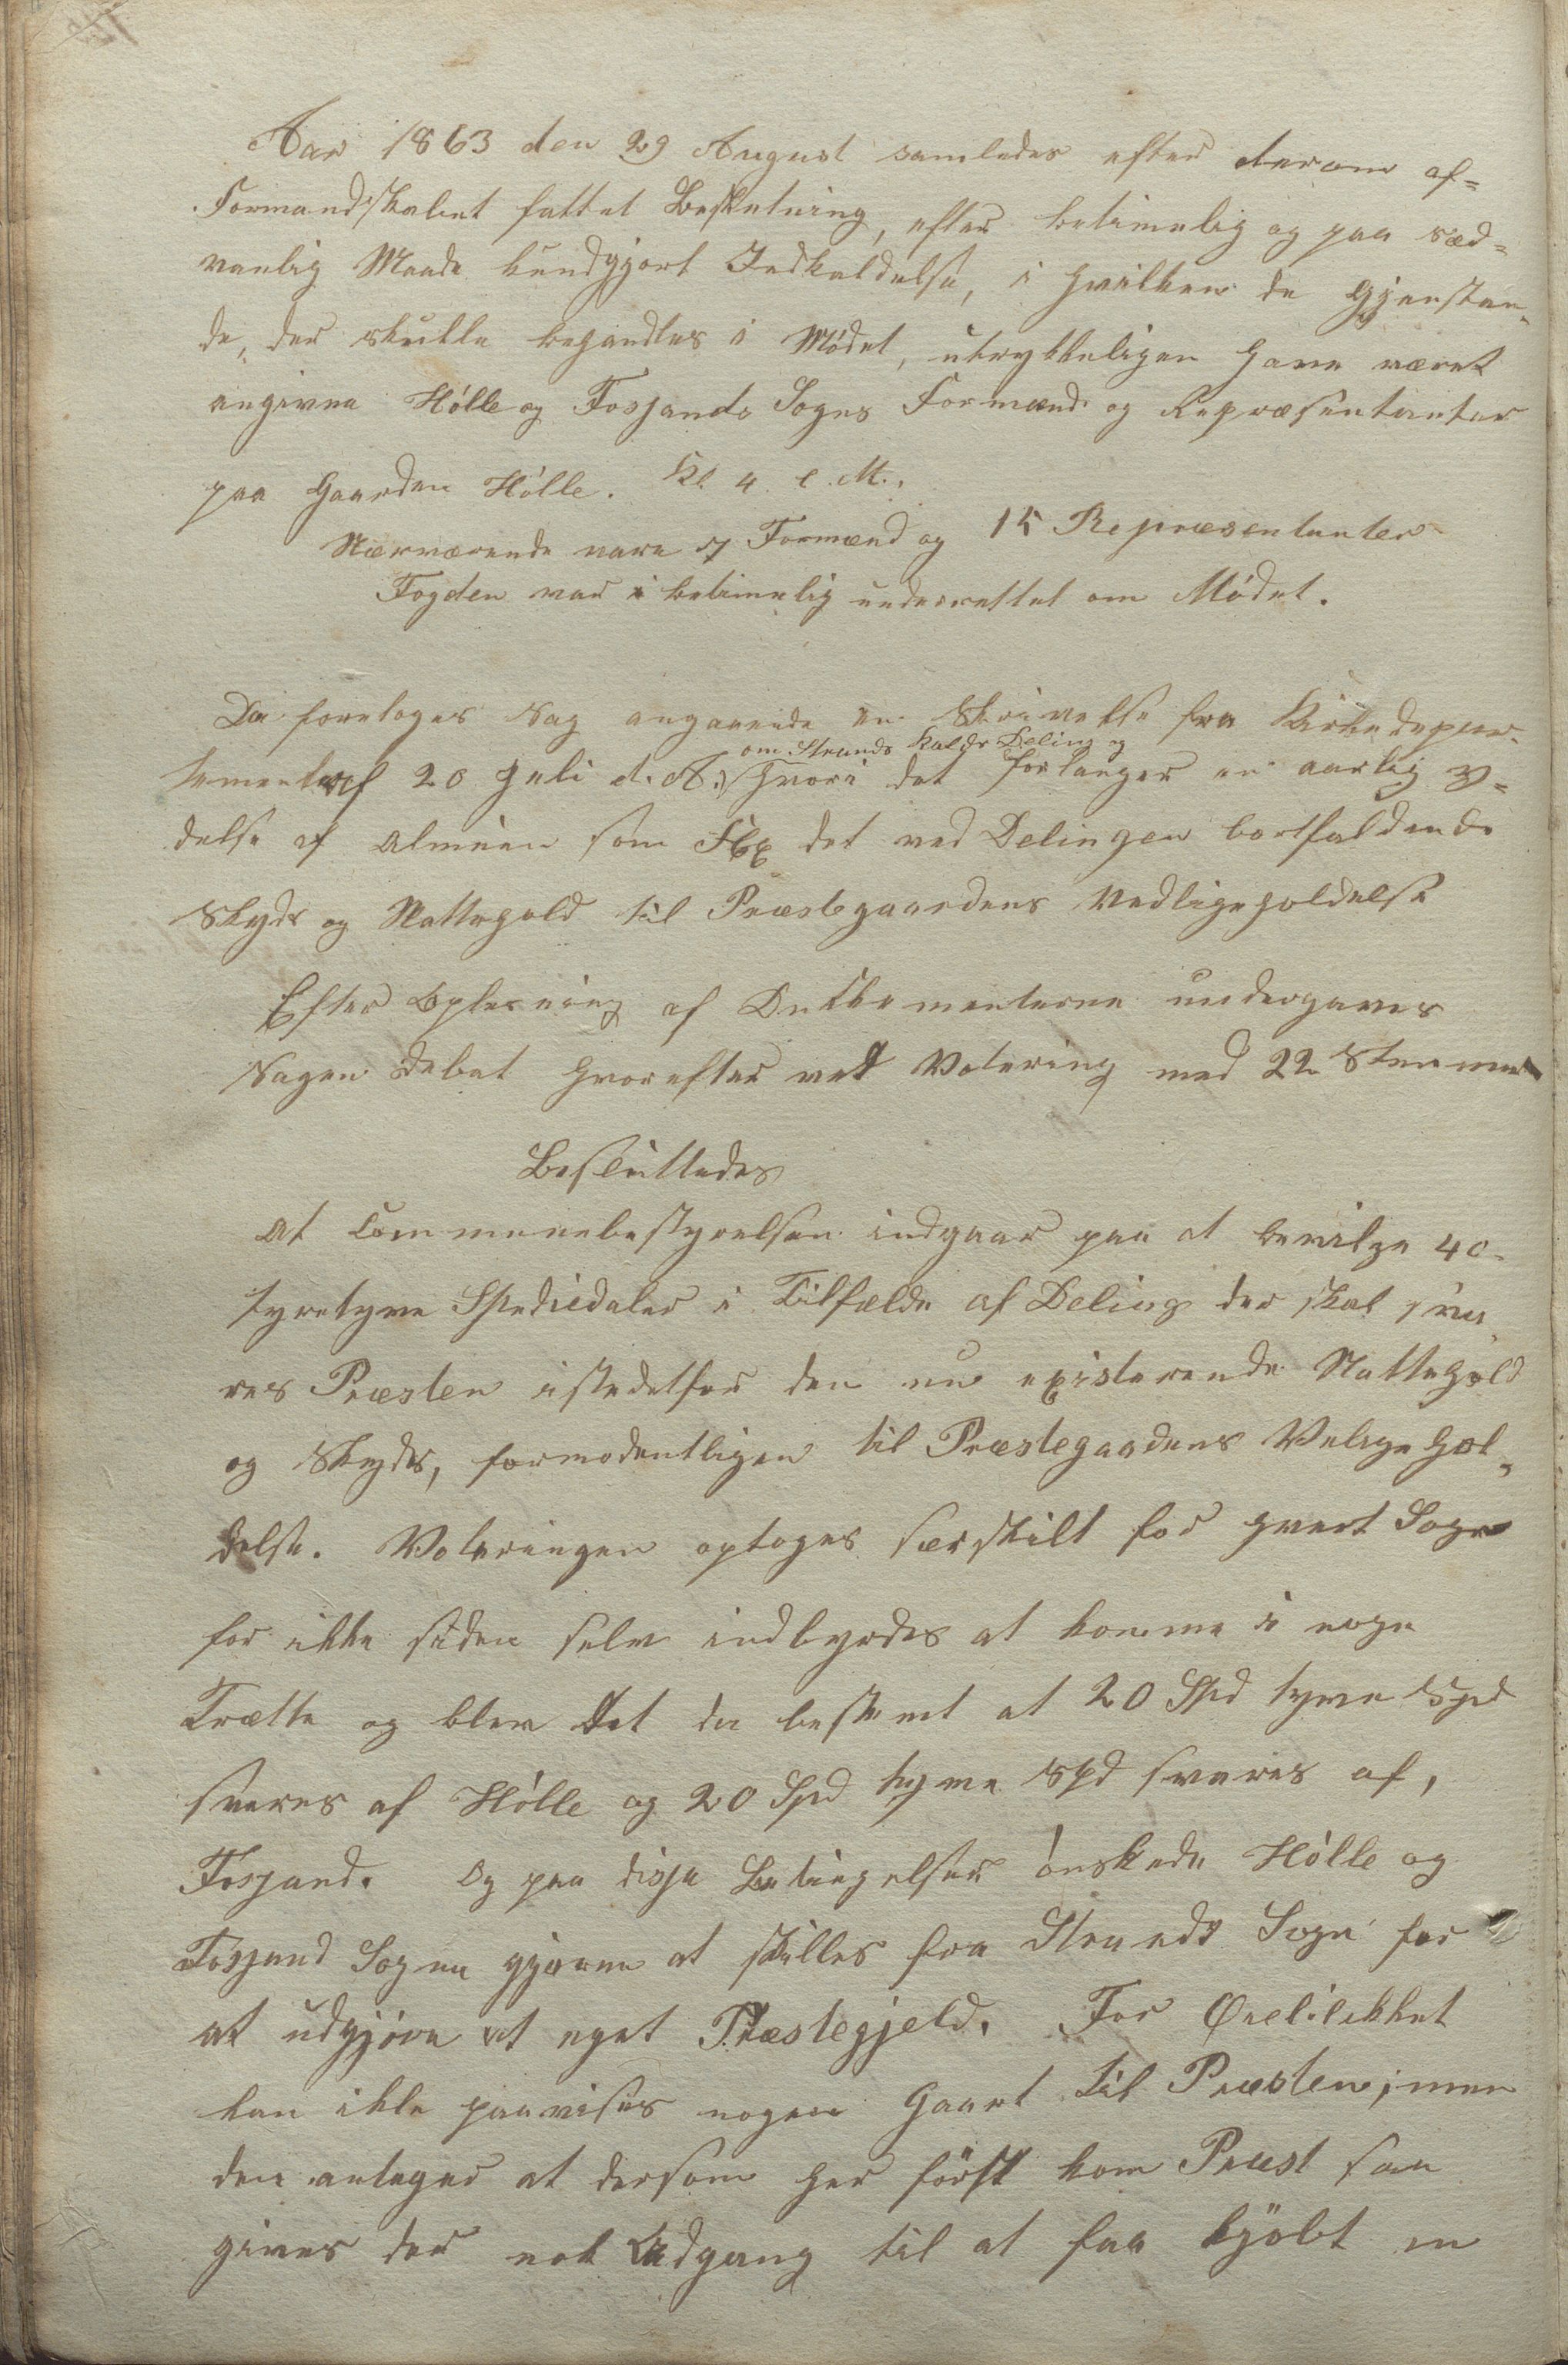 Aar 1863 den 29 August samledes efter derom af-
Formandskabet fattet Beslutning, efter betimelig og paa sæd-
vanlig Maade kundgjort Indkaldelse, i hvilken de Gjenstan-
de, der skulle behandles i Mødet, utrykkeligen have været
angivne Hölle og Fosjands Sogns Formænd og Repræsentanter
paa Gaarden Hölle. Kl. 4 e. M.
Nærværende vare 7 Formænd og 15 Repræsentanter
Fogden var i betimelig underrettet om Mödet.
Da foretoges Sag angaaende en Skrivelse fra Kirkedepar-
om Strands Kalds Deling og
tementet af 20 Juli d. A. hvori det forlanger en aarlig Y-
delse af Almuen som for det ved Delingen bortfaldende
Skyds og Nattehold til Præstegaardens Vedligeholdelse
Efter Oplesning af Dokumenterne undergaves
Sagen Debat hvorefter ved Votering med 22 Stemmer
Besluttedes
at Communebestyrelsen indgaar paa at bevilge 40-
fyretyve Spediedaler i Tilfælde af Deling der skal sva-
res Præsten istedetfor den nu existerende Nattehold
og Skyds, formodentligen til Præstegaardens Velige hol-
delse. Voteringen optoges særskilt for hvert Sogn
for ikke siden selv indbyrdes at komme i noge
Trætte og blev det da bestemt at 20 Spd tyve Spd
svares af Hölle og 20 Spd tyve Spd svares af,
Fosjand. Og paa disse Betingelser önskede Hölle og
Fosjand Sogne gjerne at skilles fra Strands Sogn for
at udgjöre et eget Præstegjeld. For Øieblikket
kan ikke paavises nogen Gaard til Præsten; men
den antager at dersom her först kom Præst saa
gives der nok Adgang til at faa kjöbt en